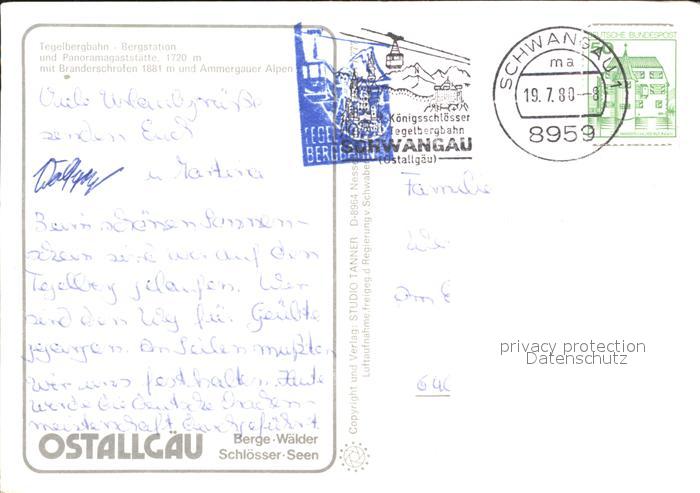 Tegelbergbahn - Bergstation
und Panoramagaststätte, 1720 m
mit Branderschrofen 1881 m und Ammergauer Alpen
Viele Urlaubsgrüße
senden Euch
Wolfgang u. Martina
Beim schönen Sonnen-
schein sind wir auf den
Tegelberg gelaufen. Wir
sind den Weg für Geübte
gegangen. An Seilen mußten
wir uns festhalten. Heute
wurde die deutsche Drachen-
meisterschaft durchgeführt
OSTALLGÄU
Berge·Wälder
Schlösser·Seen
TEGEL
BERGBAHN
Königsschlösser
Tegelbergbahn
SCHWANGAU
(Ostallgäu)
SCHWANGAU 1
ma
19.7.80-8
8959
DEUTSCHE BUNDESPOST
50
Copyright und Verlag: STUDIO TANNER D-8964 Nessel
Luftaufnahme freigeg.d.Regierung v. Schwaben
Familie
We
Am
640
privacy protection
Datenschutz